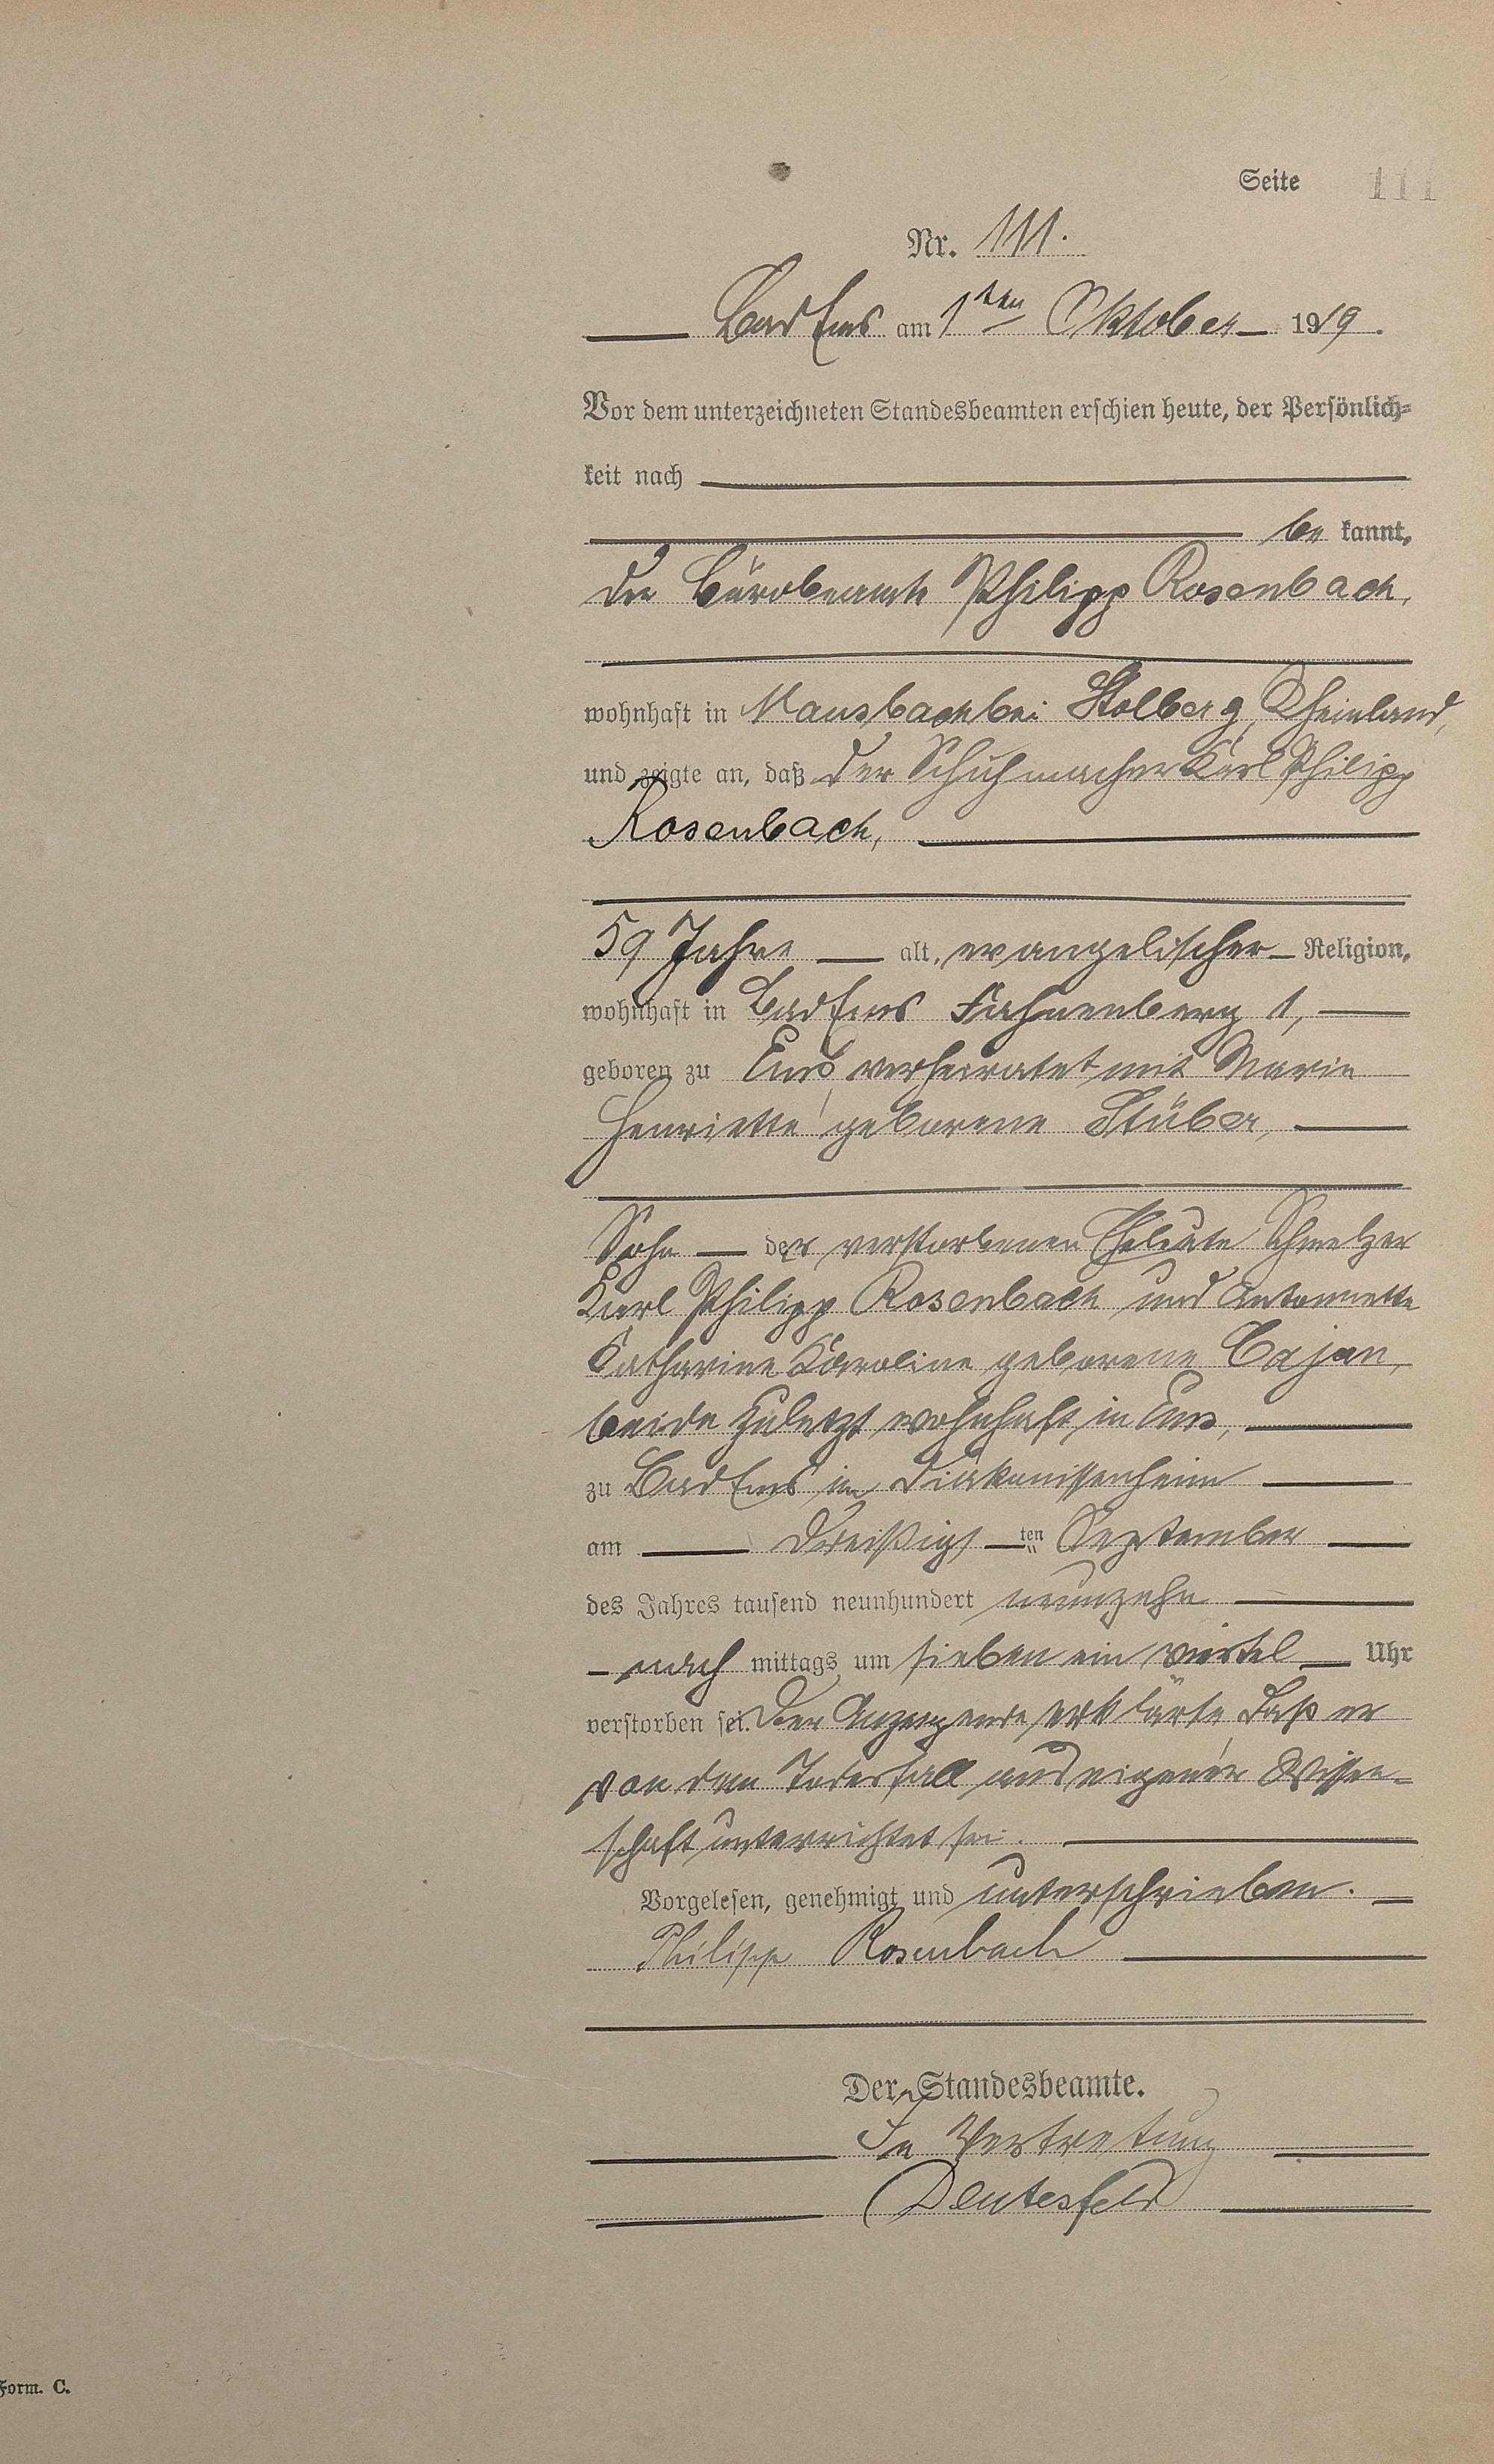 Seite 111
Nr. 111.
Bad Ems am 1ten Oktober 1919.
Vor dem unterzeichneten Standesbeamten erschien heute, der Persönlich-
keit nach
be kannt,
der Bürobeamte Philipp Rosenbach,
wohnhaft in Mausbach bei Stolberg, Rheinland,
und zeigte an, daß der Schuhmacher Karl Philipp
Rosenbach,
59 Jahre alt, evangelischer Religion,
wohnhaft in Bad Ems Fahnenberg 1,
geboren zu Ems, verheiratet mit Marie
Henriette geborene Stüber,
Sohn der verstorbenen Eheleute Schmelzer
Karl Philipp Rosenbach und Antonnette
Katharine Karoline geborene Cajan,
beide zuletzt wohnhaft in Ems,
zu Bad Ems im Diakonissenheim
am dreißigsten September
des Jahres tausend neunhundert neunzehn
nach mittags um sieben ein viertel Uhr
verstorben sei. Der Anzeigende erklärte, daß er
von dem Todesfall aus eigener Wissen-
schaft unterrichtet sei.
Vorgelesen, genehmigt und unterschrieben.
Philipp Rosenbach
Der Standesbeamte.
In Vertretung
Deutesfeld
Form. C.